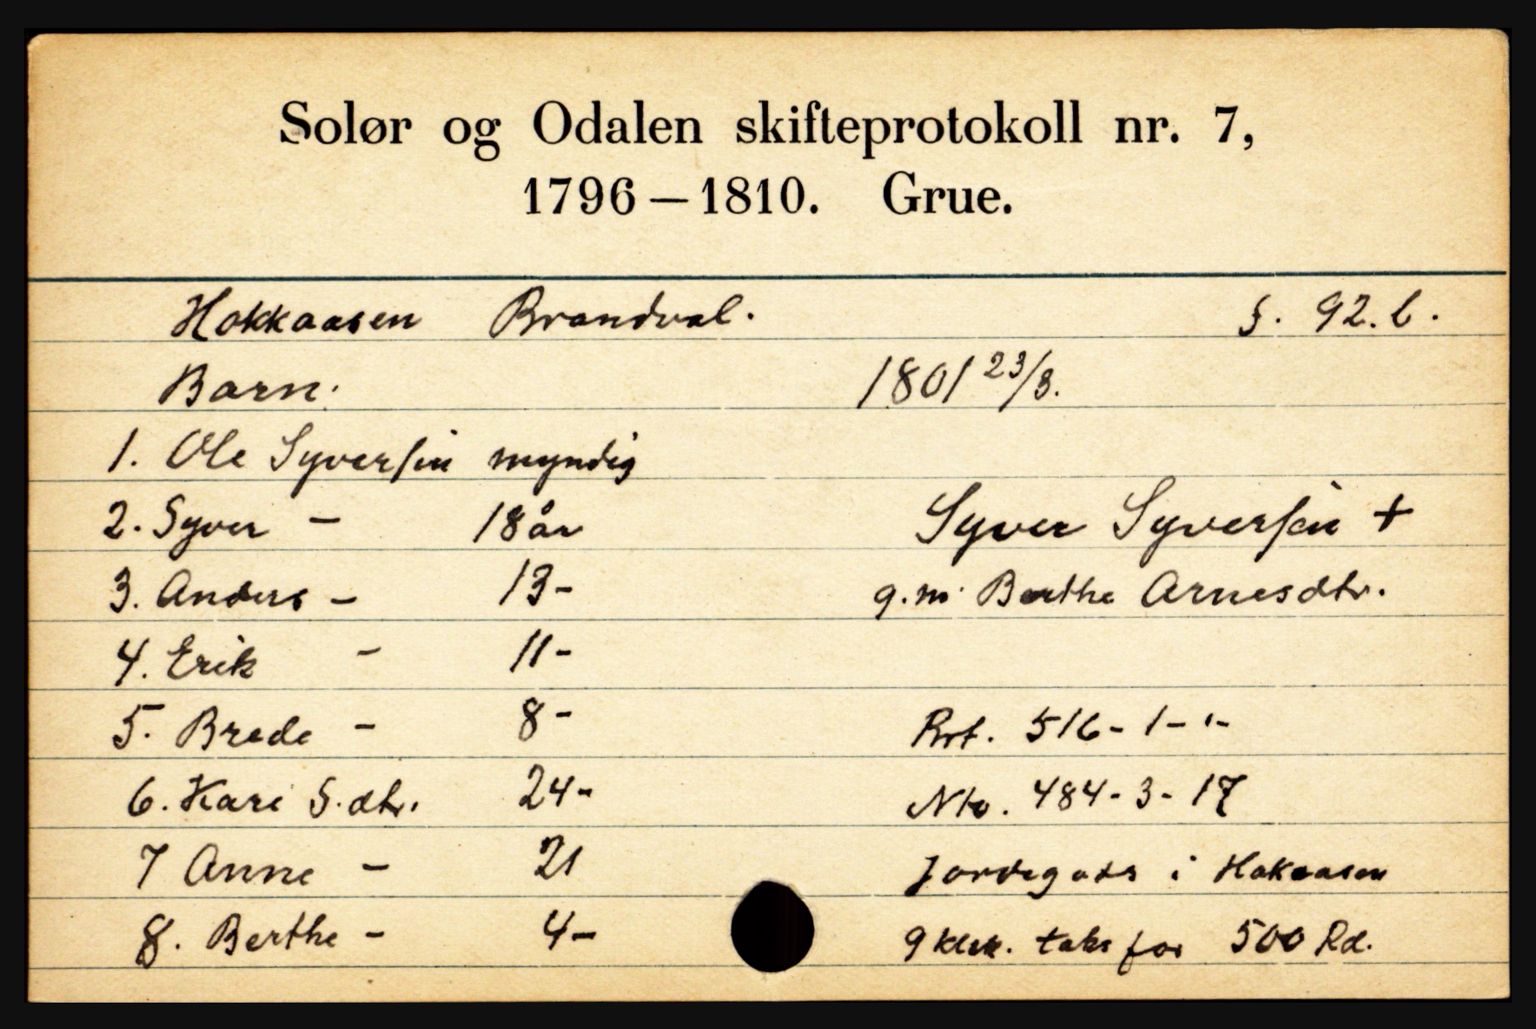 Solør og Odalen skifteprotokoll nr. 7,
1796 – 1810. Grue.
Hokkaasen Brandval. S. 92.b.
Barn. 1801 23/3.
1. Ole Syversen myndig
2. Syver – 18 år
Syver Syversen +
3. Anders – 13 –
g.m. Berthe Arnesdtr.
4. Erik – 11 –
5. Brede – 8 –
Brt. 516 - 1 - " -
6. Kari S.dtr. 24 –
Nto. 484 - 3 - 17
7 Anne – 21
Jordegods i Hokaasen
8. Berthe – 4 –
9 taks for 500 Rd.